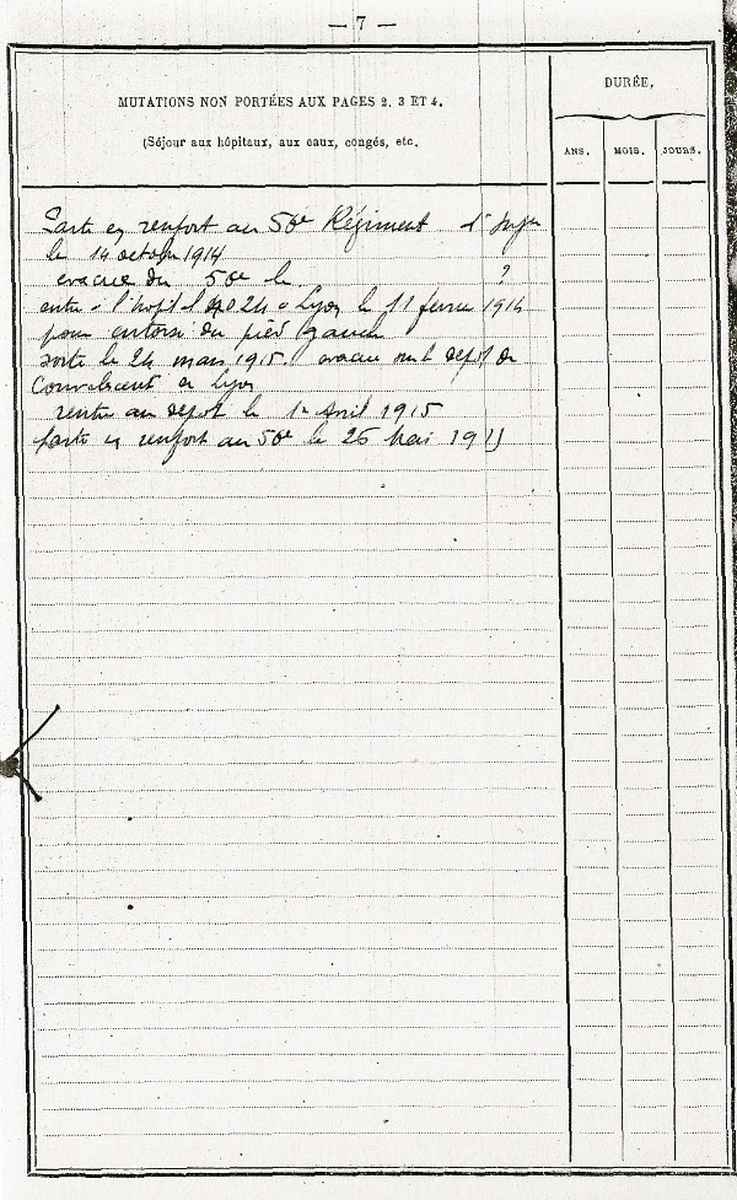 — 7 —
MUTATIONS NON PORTÉES AUX PAGES 2. 3 ET 4.
(Séjour aux hôpitaux, aux eaux, congés, etc.
DURÉE.
ANS. MOIS. JOURS.
Parti en renfort au 56e Régiment d'
le 14 octobre 1914
evacué du 56e le ?
entre à l'hopital 24 a Lyon le 11 fevrier 1914
pour entorse du pied gauche
sorti le 24 mars 1915. evacué sur le depot de
Convalescent de Lyon
rentre au depot le 1er Avril 1915
parti en renfort au 56e le 26 Mai 1915